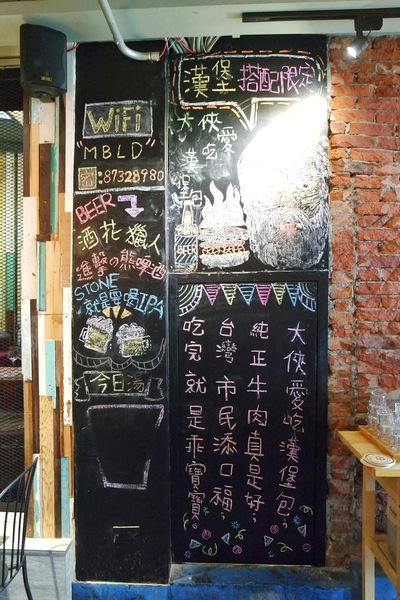 WiFi
"MBLD"
密:87328980
BEER
酒花獵人
進擊の熊啤酒
STONE
就是要喝IPA
今日湯
漢堡搭配限定
大俠愛吃漢堡包
BEER
大俠愛吃漢堡包,
純正牛肉真是好,
台灣市民添口福,
吃完就是乖寶寶。